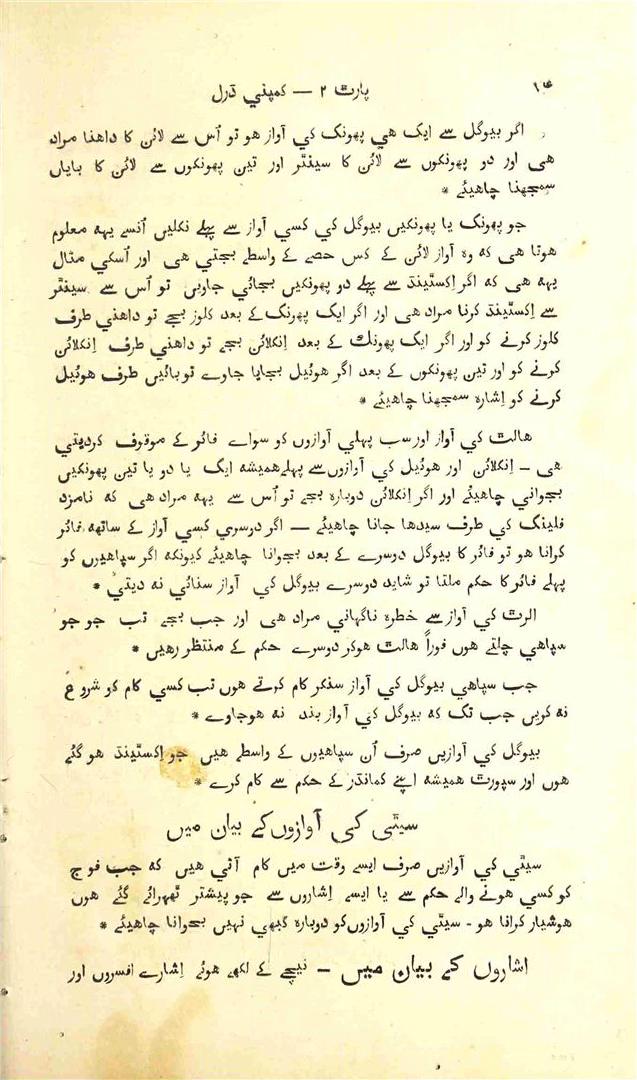 پارٹ ۲ — کمپني ڈرل
اگر بیوگل سے ایک ھي پھونک کي آواز ھو تو اُس سے لائن کا داھنا مراد
ھی اور دو پھونکوں سے لائن کا سینٹر اور تین پھونکوں سے لائن کا بایاں
سمجھنا چاھیئے *
جو پھونک یا پھونکیں بیوگل کي کسي آواز سے پہلے نکلیں اُنسے یہہ معلوم
ھوتا ھی کہ وہ آواز لائن کے کس حصے کے واسطے بجتي ھی اور اُسکي مثال
یہہ ھی کہ اگر اِکسٹینڈ سے پہلے دو پھونکیں بجائي جاویں تو اُس سے سینٹر
سے اِکسٹینڈ کرنا مراد ھی اور اگر ایک پھونک کے بعد کلوز بجے تو داھني طرف
کلوز کرنے کو اور اگر ایک پھونک کے بعد اِنکلائن بجے تو داھني طرف اِنکلائن
کرنے کو اور تین پھونکوں کے بعد اگر ھوئیل بجایا جاوے تو بائیں طرف ھوئیل
کرنے کو اِشارہ سمجھنا چاھیئے *
ھالٹ کي آواز اور سب پہلي آوازوں کو سواے فائر کے موقوف کردیتي
ھی - اِنکلائن اور ھوئیل کي آوازوں سے پہلے ھمیشہ ایک یا دو یا تین پھونکیں
بجواني چاھیئے اور اگر اِنکلائن دوبارہ بجے تو اُس سے یہہ مراد ھی کہ نامزد
فلینک کي طرف سیدھا جانا چاھیئے — اگر دوسري کسي آواز کے ساتھہ فائر
کرانا ھو تو فائر کا بیوگل دوسرے کے بعد بجوانا چاھیئے کیونکہ اگر سپاھیوں کو
پہلے فائر کا حکم ملتا تو شاید دوسرے بیوگل کي آواز سنائي نہ دیتي *
الرٹ کي آواز سے خطرہ ناگہاني مراد ھی اور جب بجے تب جو جو
سپاھي چلتے ھوں فوراً ھالٹ ھوکر دوسرے حکم کے منتظر رھیں *
جب سپاھي بیوگل کي آواز سنکر کام کرتے ھوں تب کسي کام کو شروع
نہ کریں جب تک کہ بیوگل کي آواز بند نہ ھوجاوے *
بیوگل کي آوازیں صرف اُن سپاھیوں کے واسطے ھیں جو اِکسٹینڈ ھو گئے
ھوں اور سپورٹ ھمیشہ اپنے کمانڈر کے حکم سے کام کرے *
سیٹي کي آوازوں کے بیان میں
سیٹي کي آوازیں صرف ایسے وقت میں کام آتي ھیں کہ جب فوج
کو کسي ھونے والے حکم سے یا ایسے اِشاروں سے جو پیشتر ٹھہرائے گئے ھوں
ھوشیار کرانا ھو - سیٹي کي آوازوں کو دوبارہ کبھي نہیں بجوانا چاھیئے *
اشاروں کے بیان میں - نیچے کے لکھے ھوئے اِشارے افسروں اور